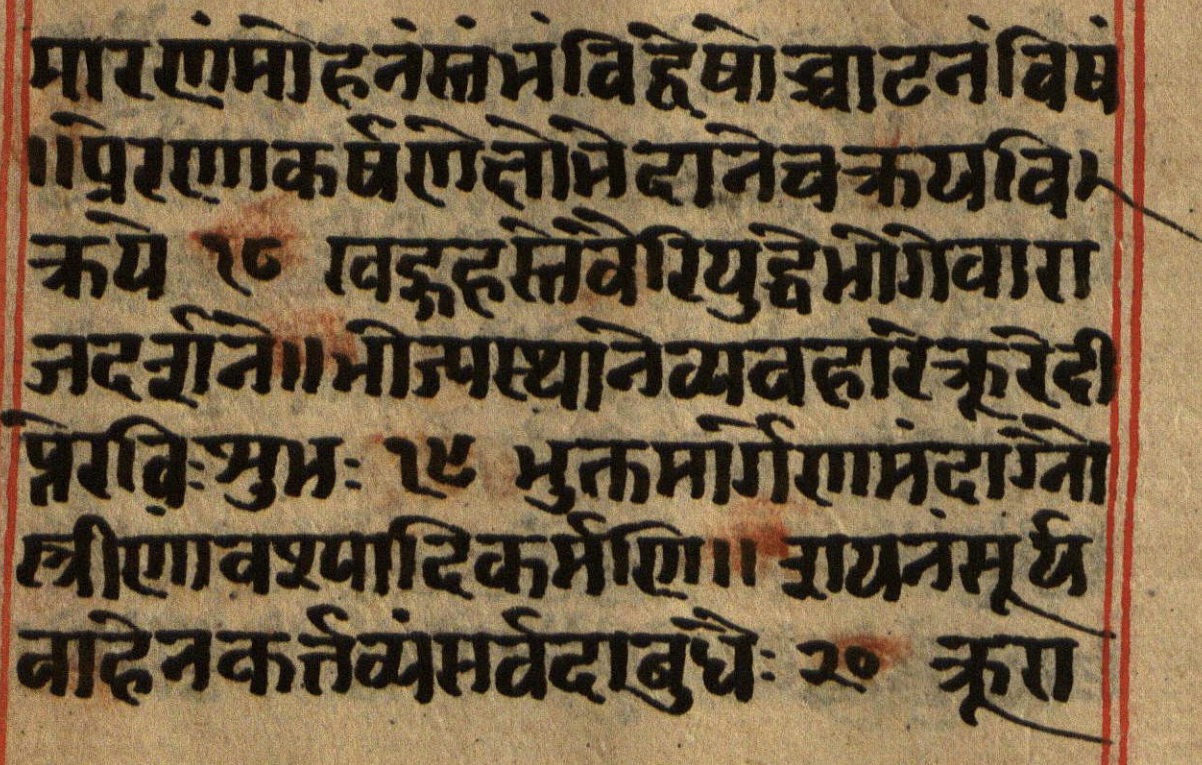 मारणंमोहनंस्तंभंविद्वेषोच्चाटनंविषं
॥प्रेरणाकर्षणेक्षोभेदानेचक्रयवि
क्रये १८ खड्गहस्तेवैरियुद्धेभोगेवारा
जदर्शने॥भोज्यस्थानेव्यवहारेक्रूरेदी
प्तेरविःशुभः १९ भुक्तमार्गेणमंदाग्नौ
स्त्रीणावश्यादिकर्मणि॥शयनंसूर्य
वाहेनकर्त्तव्यंसर्वदाबुधैः २० क्रूरा